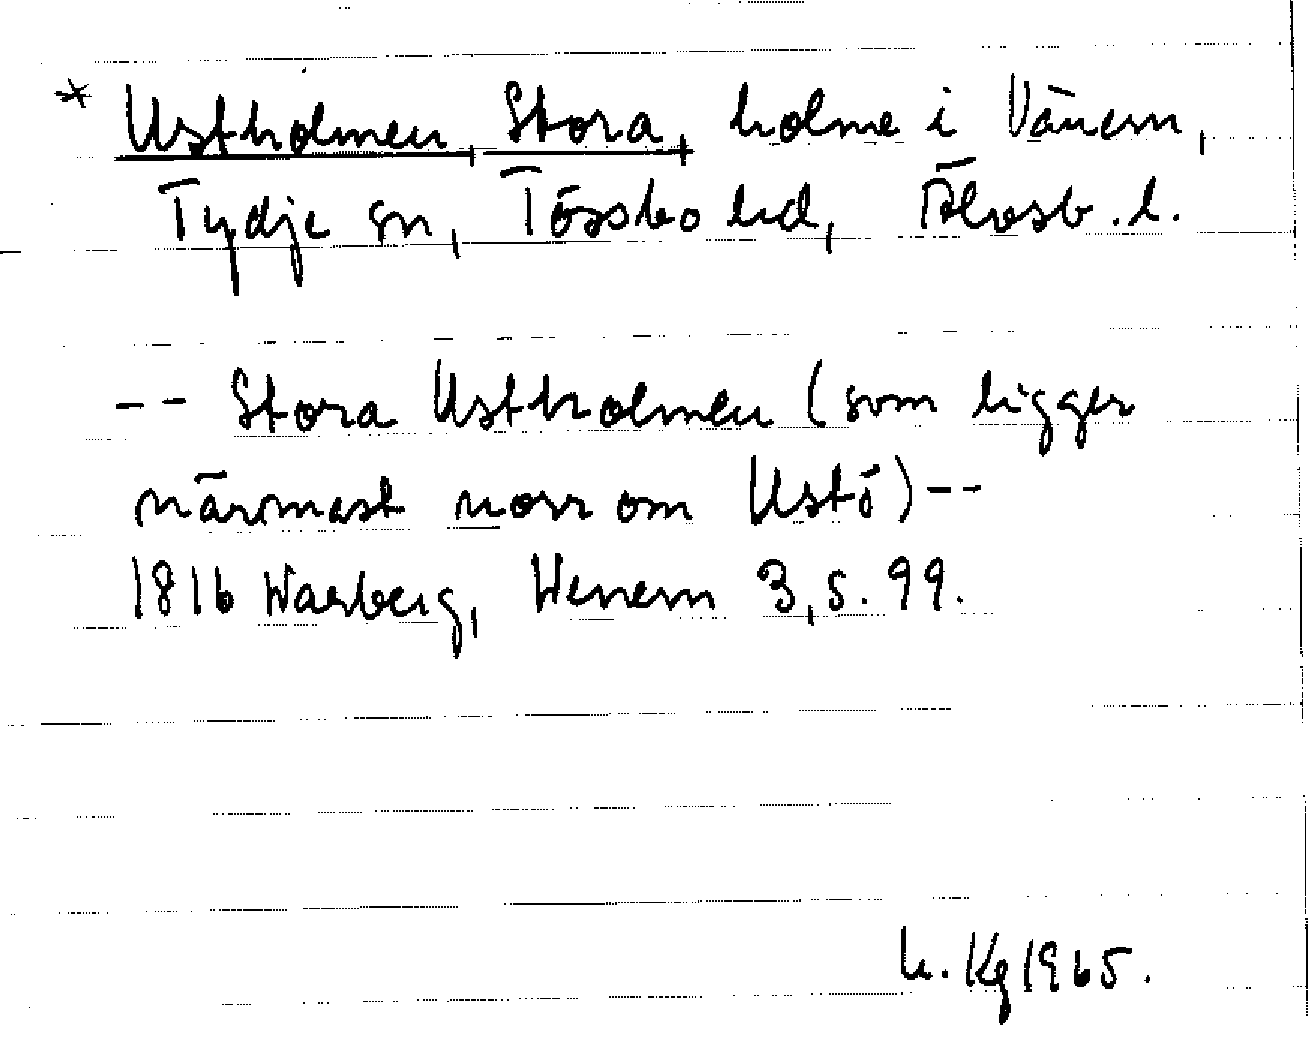 * Ustholmen, Stora, holme i Vänern,
Tydje sn, Tössbo hd, Älvsb. l.
-- Stora Ustholmen (som ligger
närmast norr om Ustö) --
1816 Warberg, Wenern 3, s. 99.
h. Kg 1965.